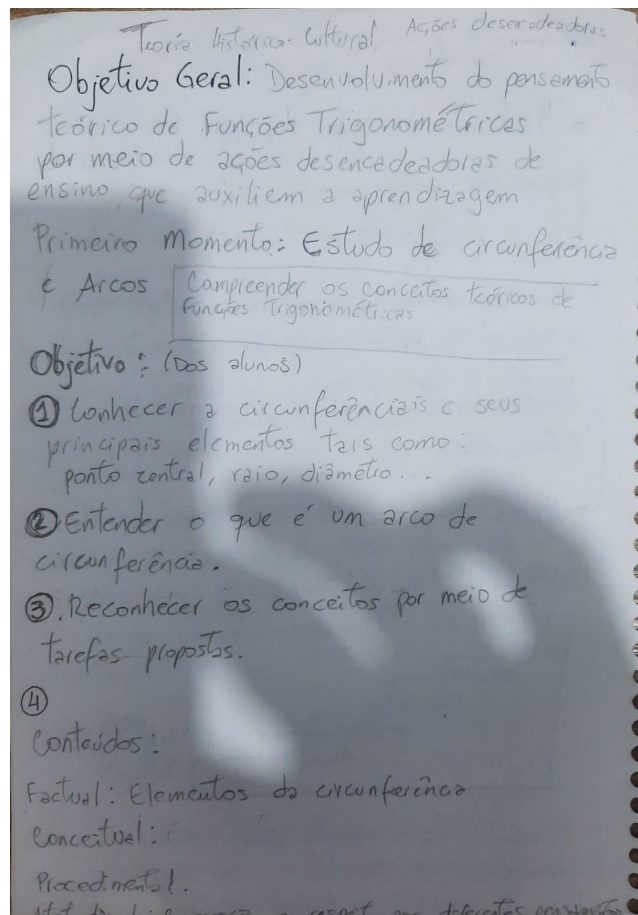 Teoria Histórico-Cultural. Ações desencadeadoras
Objetivo Geral: Desenvolvimento do pensamento
teórico de Funções Trigonométricas
por meio de ações desencadeadoras de
ensino que auxiliem a aprendizagem
Primeiro Momento: Estudo de circunferência
e Arcos
Compreender os conceitos teóricos de
Funções Trigonométricas
Objetivo: (Dos alunos)
① Conhecer a circunferênciais e seus
principais elementos tais como:
ponto central, raio, diâmetro...
② Entender o que é um arco de
circunferência.
③. Reconhecer os conceitos por meio de
tarefas propostas.
④
Conteúdos:
Factual: Elementos da circunferência
Conceitual:
Procedimental.